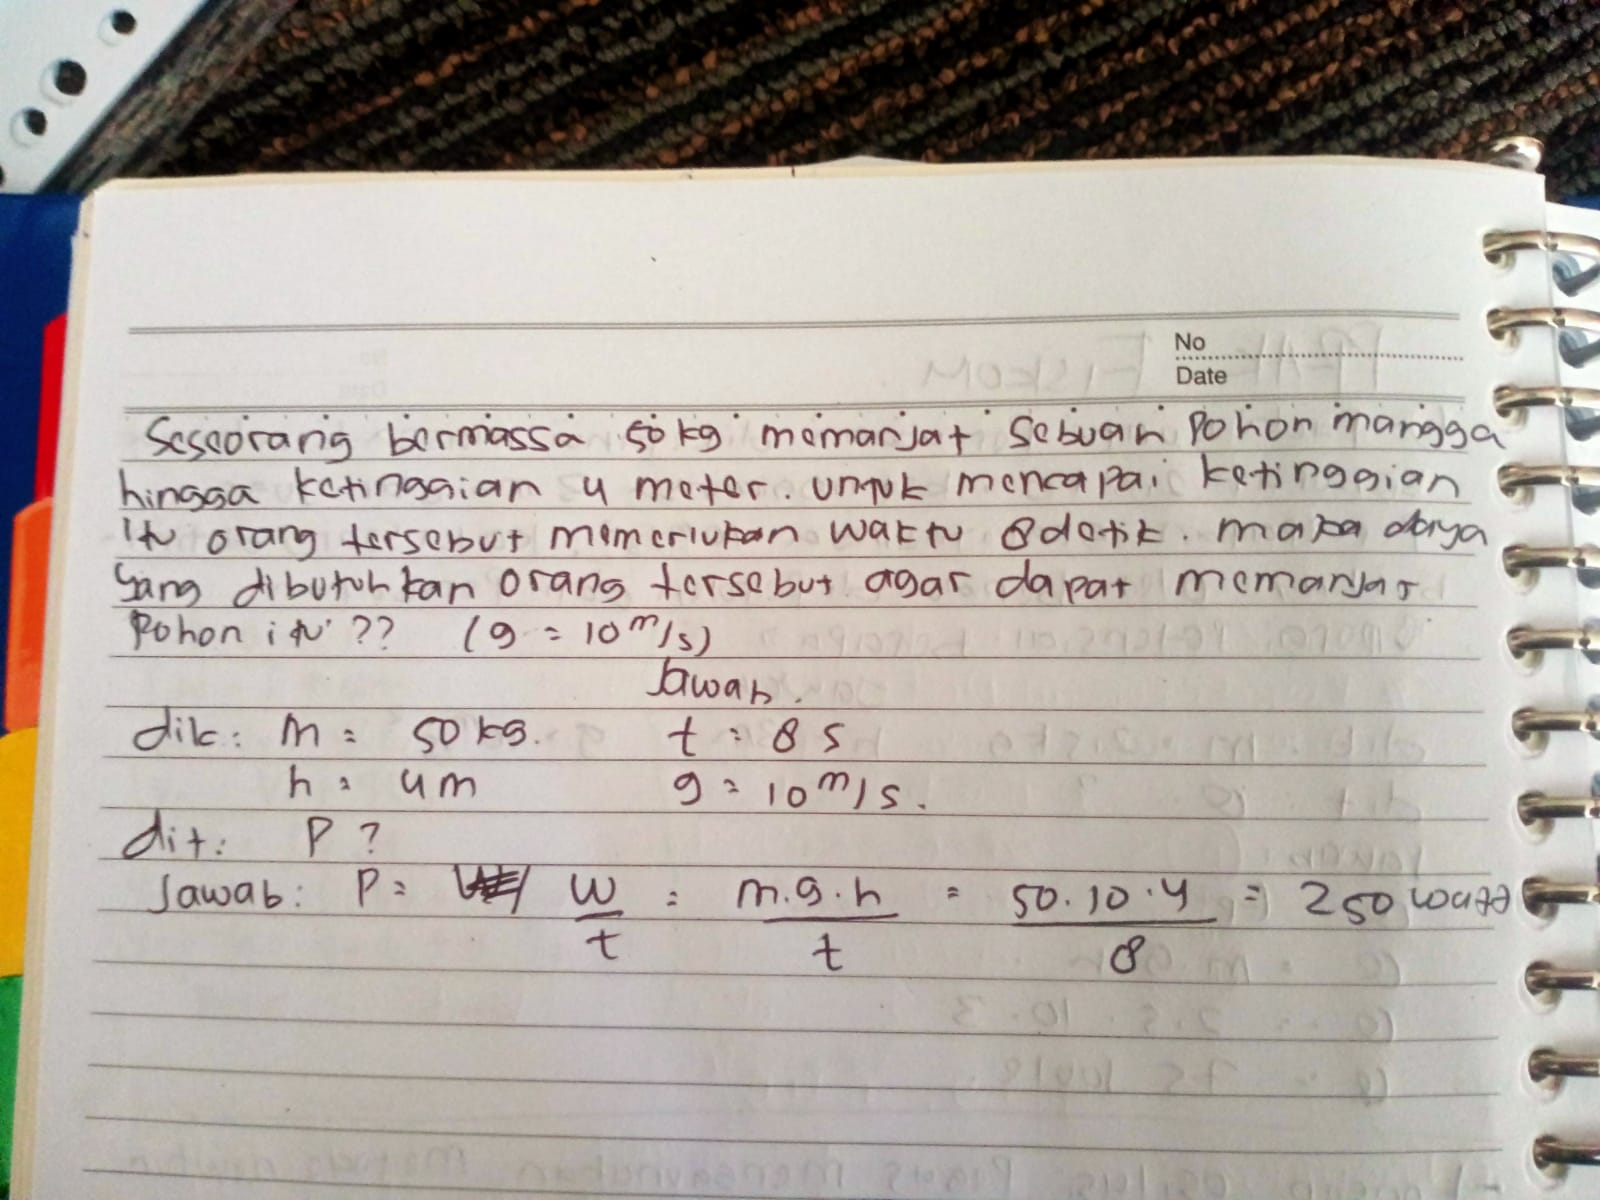 No
Date
Seseorang bermassa 50 kg memanjat sebuah pohon mangga
hingga ketinggian 4 meter. untuk mencapai ketinggian
itu orang tersebut memerlukan waktu 8 detik. maka daya
yang dibutuhkan orang tersebut agar dapat memanjat
pohon itu ?? (g = 10 m/s)
Jawab.
dik: m = 50 kg. t = 8 s
h = 4 m g = 10 m/s.
dit: P ?
Jawab: P = W/t = m.g.h/t = 50.10.4/8 = 250 watt